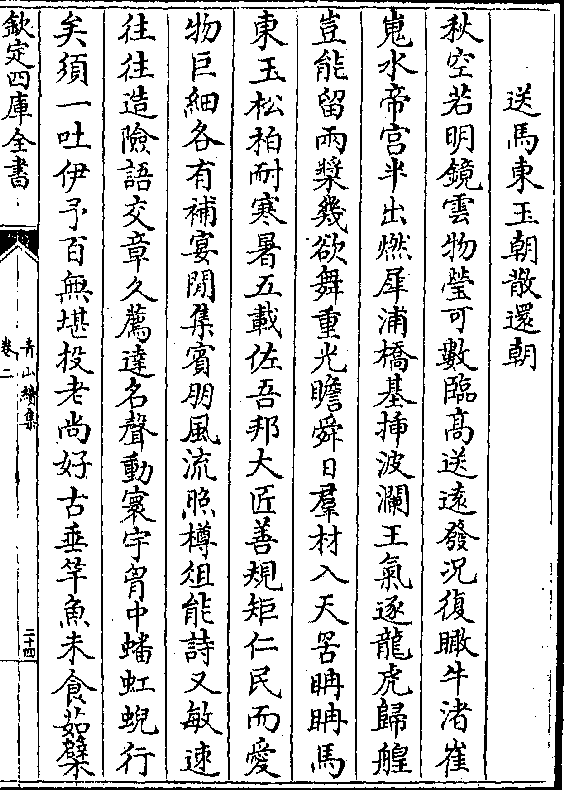 送馬東玉朝散還朝
秋空若明鏡雲物瑩可數臨髙送逺發況復瞰牛渚崔
嵬水帝宫半出燃犀浦橋基揷波瀾王氣逐龍虎歸艎
豈能留兩槳幾欲舞重光瞻舜日羣材入天罟眀眀馬
東玉松柏耐寒暑五載佐吾邦大匠善規矩仁民而愛
物巨細各有補宴閒集賓朋風流照樽俎能詩又敏速
往往造險語交章久薦達名聲動寰宇胷中蟠虹蜺行
矣須一吐伊予百無堪投老尚好古垂竿魚未食茹櫱
欽定四庫全書
青山續集
卷二
二十四